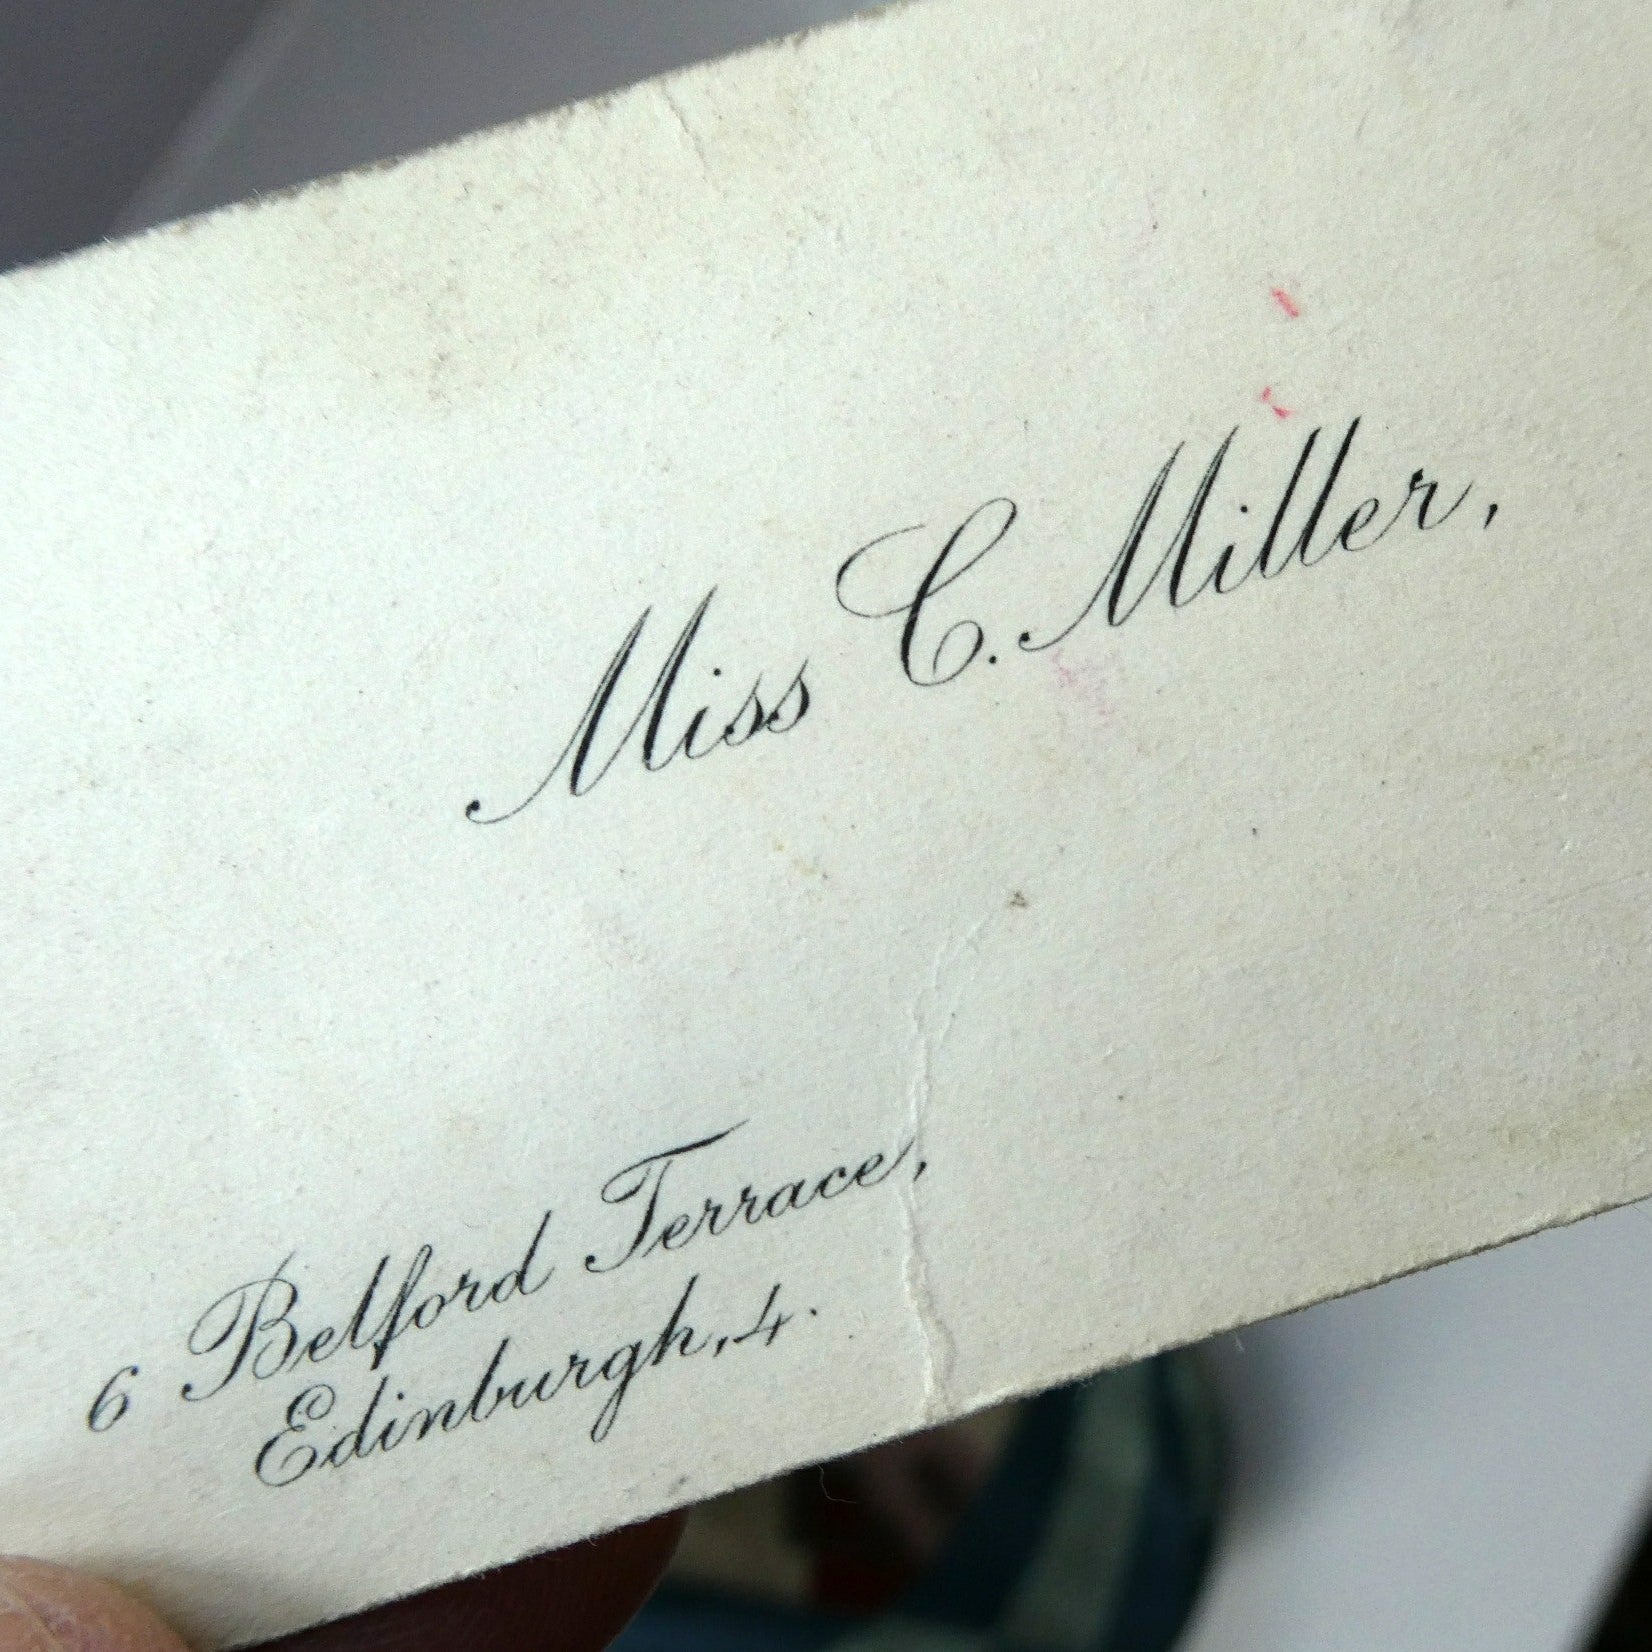 Miss C. Miller,
6 Belford Terrace,
Edinburgh, 4.